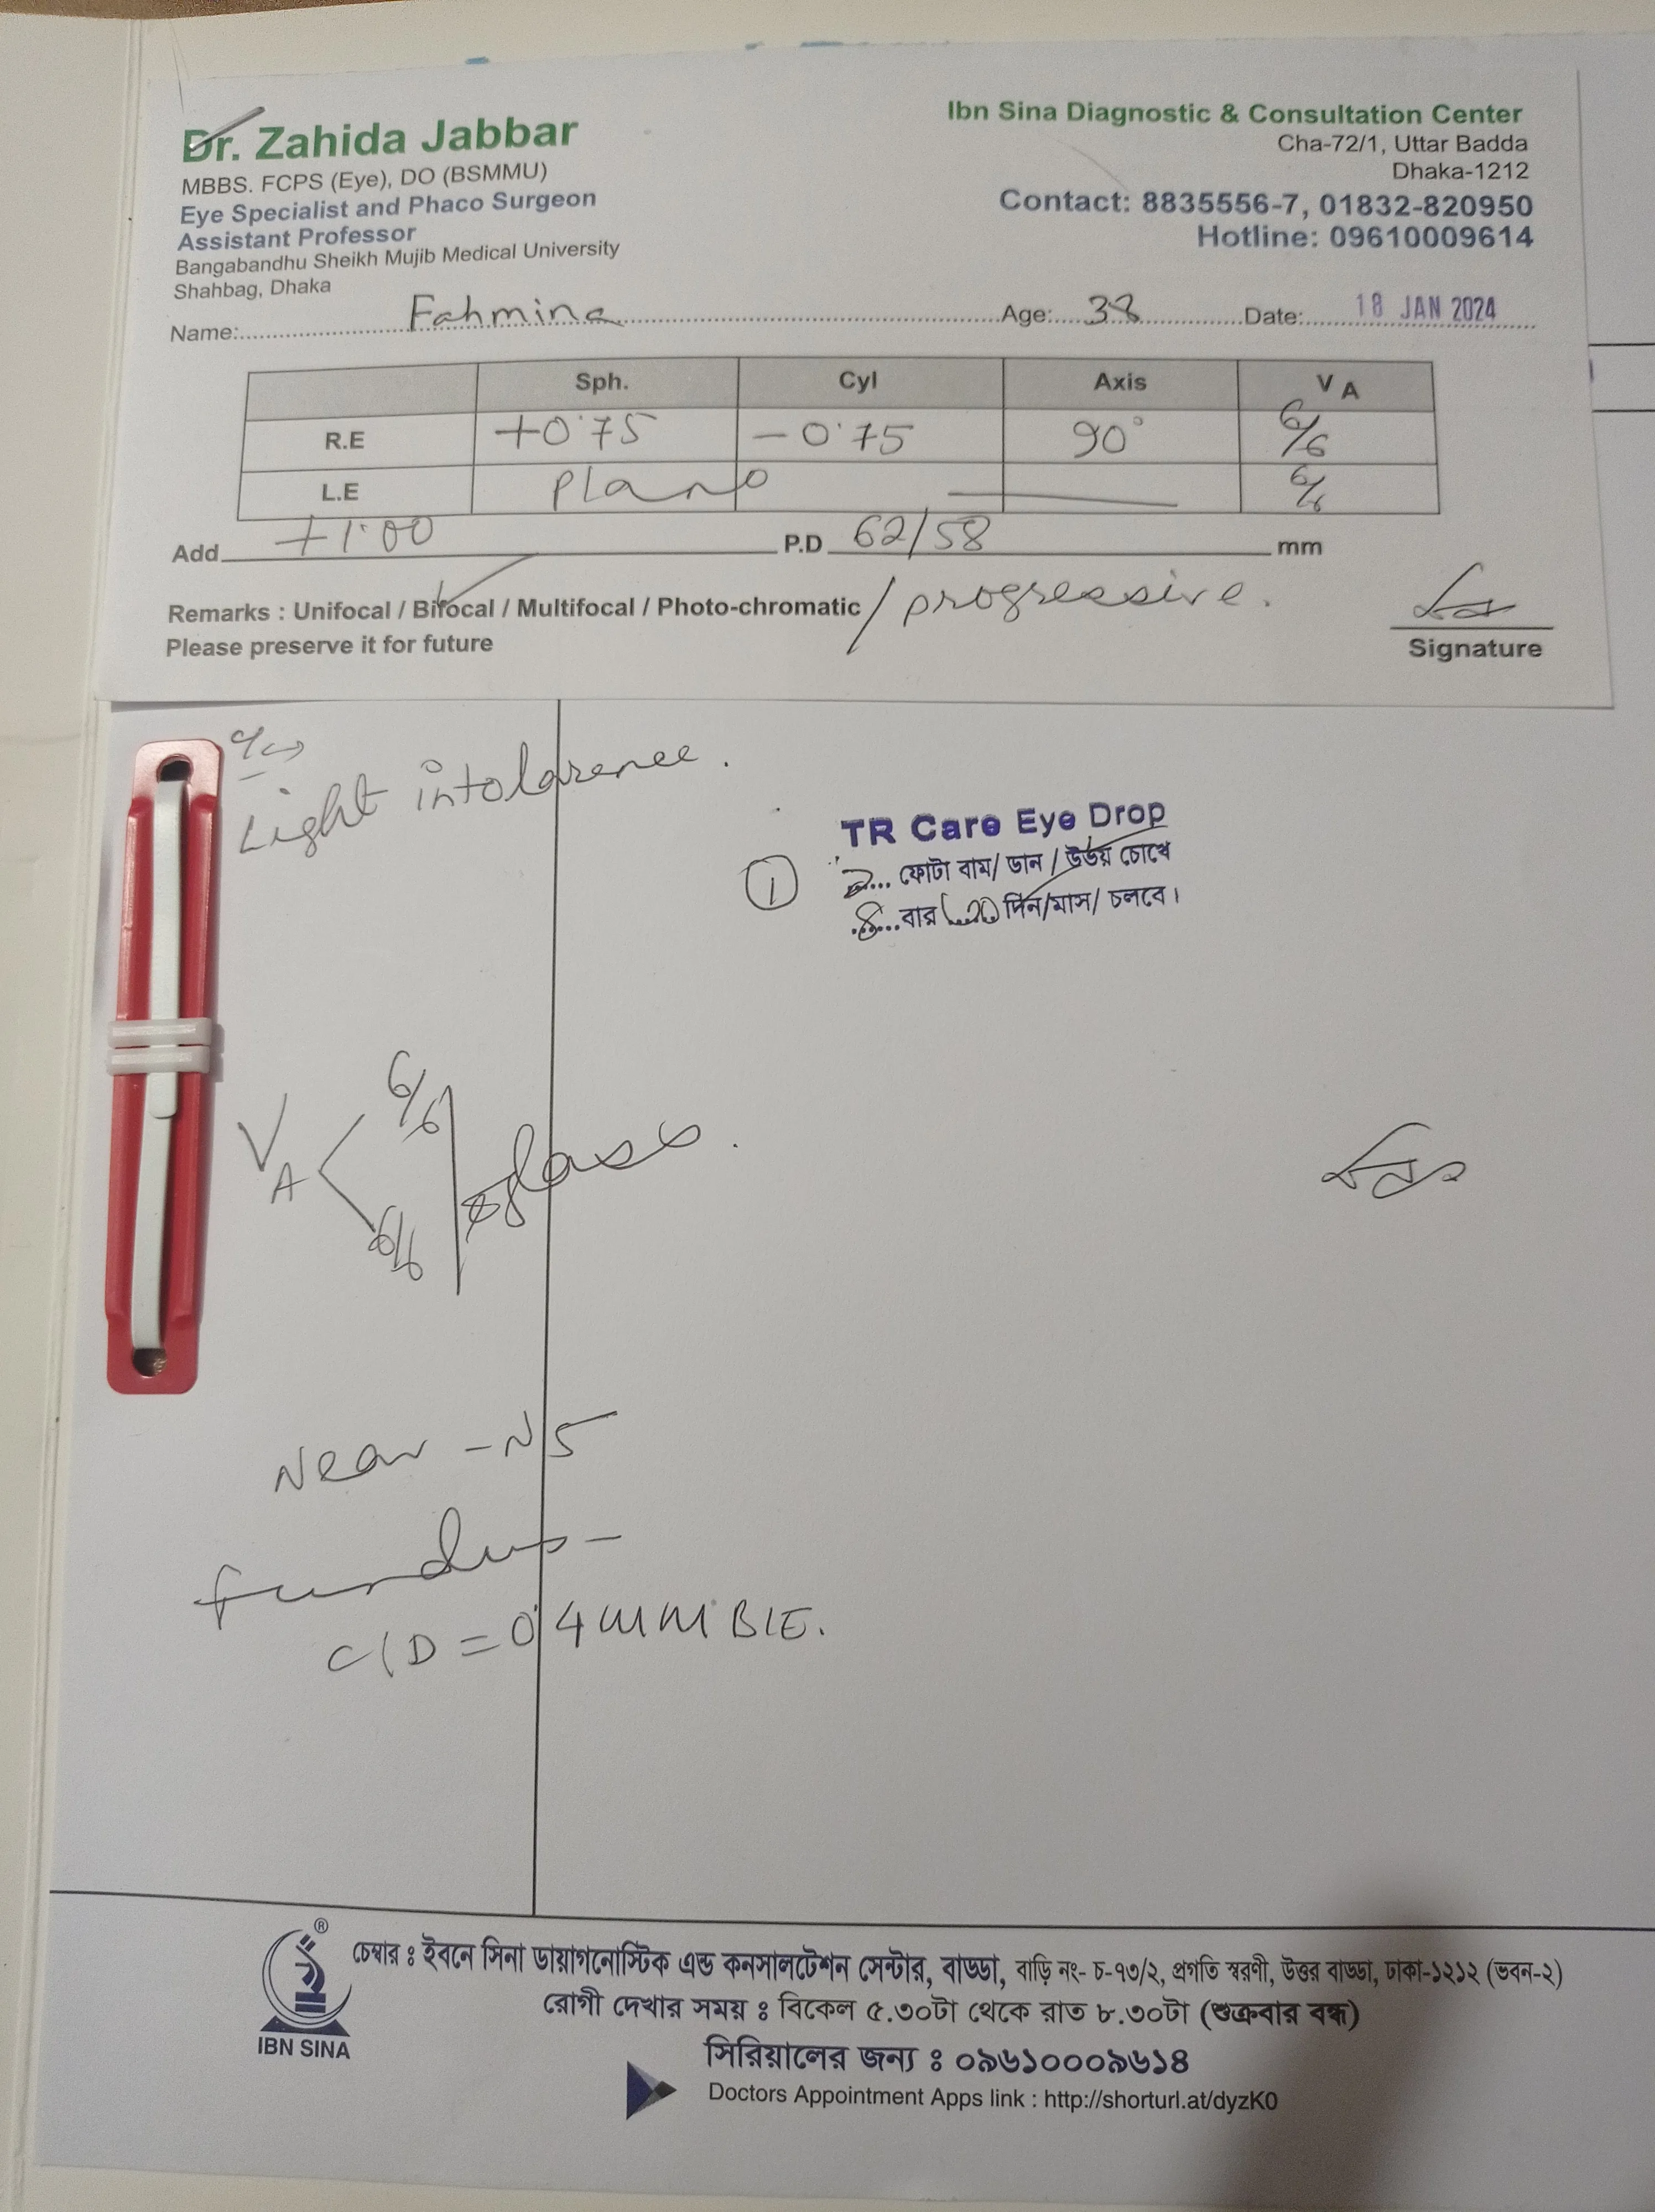 Dr. Zahida Jabbar
MBBS. FCPS (Eye), DO (BSMMU)
Eye Specialist and Phaco Surgeon
Assistant Professor
Bangabandhu Sheikh Mujib Medical University
Shahbag, Dhaka
Ibn Sina Diagnostic & Consultation Center
Cha-72/1, Uttar Badda
Dhaka-1212
Contact: 8835556-7, 01832-820950
Hotline: 09610009614
Name: Fahmina Age: 38 Date: 18 JAN 2024
Sph. Cyl Axis V A
R.E +0.75 -0.75 90° 6/6
L.E Plano 6/6
Add +1.00 P.D 62/58 mm
Remarks : Unifocal / Bifocal / Multifocal / Photo-chromatic / progressive.
Please preserve it for future
Signature
Light intolarence.
TR Care Eye Drop
① ২... ফোটা বাম/ ডান / উভয় চোখে
৪...বার দিন/মাস/ চলবে।
VA 6/6
6/6
glass.
Near - N5
fundus -
C/D = 0.4 mm B/E.
IBN SINA
চেম্বার ঃ ইবনে সিনা ডায়াগনোস্টিক এন্ড কনসালটেশন সেন্টার, বাড্ডা, বাড়ি নং- চ-৭৩/২, প্রগতি স্বরণী, উত্তর বাড্ডা, ঢাকা-১২১২ (ভবন-২)
রোগী দেখার সময় ঃ বিকেল ৫.৩০টা থেকে রাত ৮.৩০টা (শুক্রবার বন্ধ)
সিরিয়ালের জন্য ঃ ০৯৬১০০০৯৬১৪
Doctors Appointment Apps link : http://shorturl.at/dyzK0